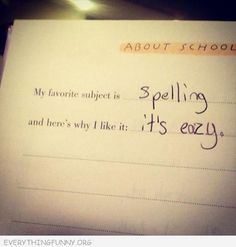 ABOUT SCHOOL
My favorite subject is spelling
and here's why I like it: it's eazy.
EVERYTHINGFUNNY.ORG